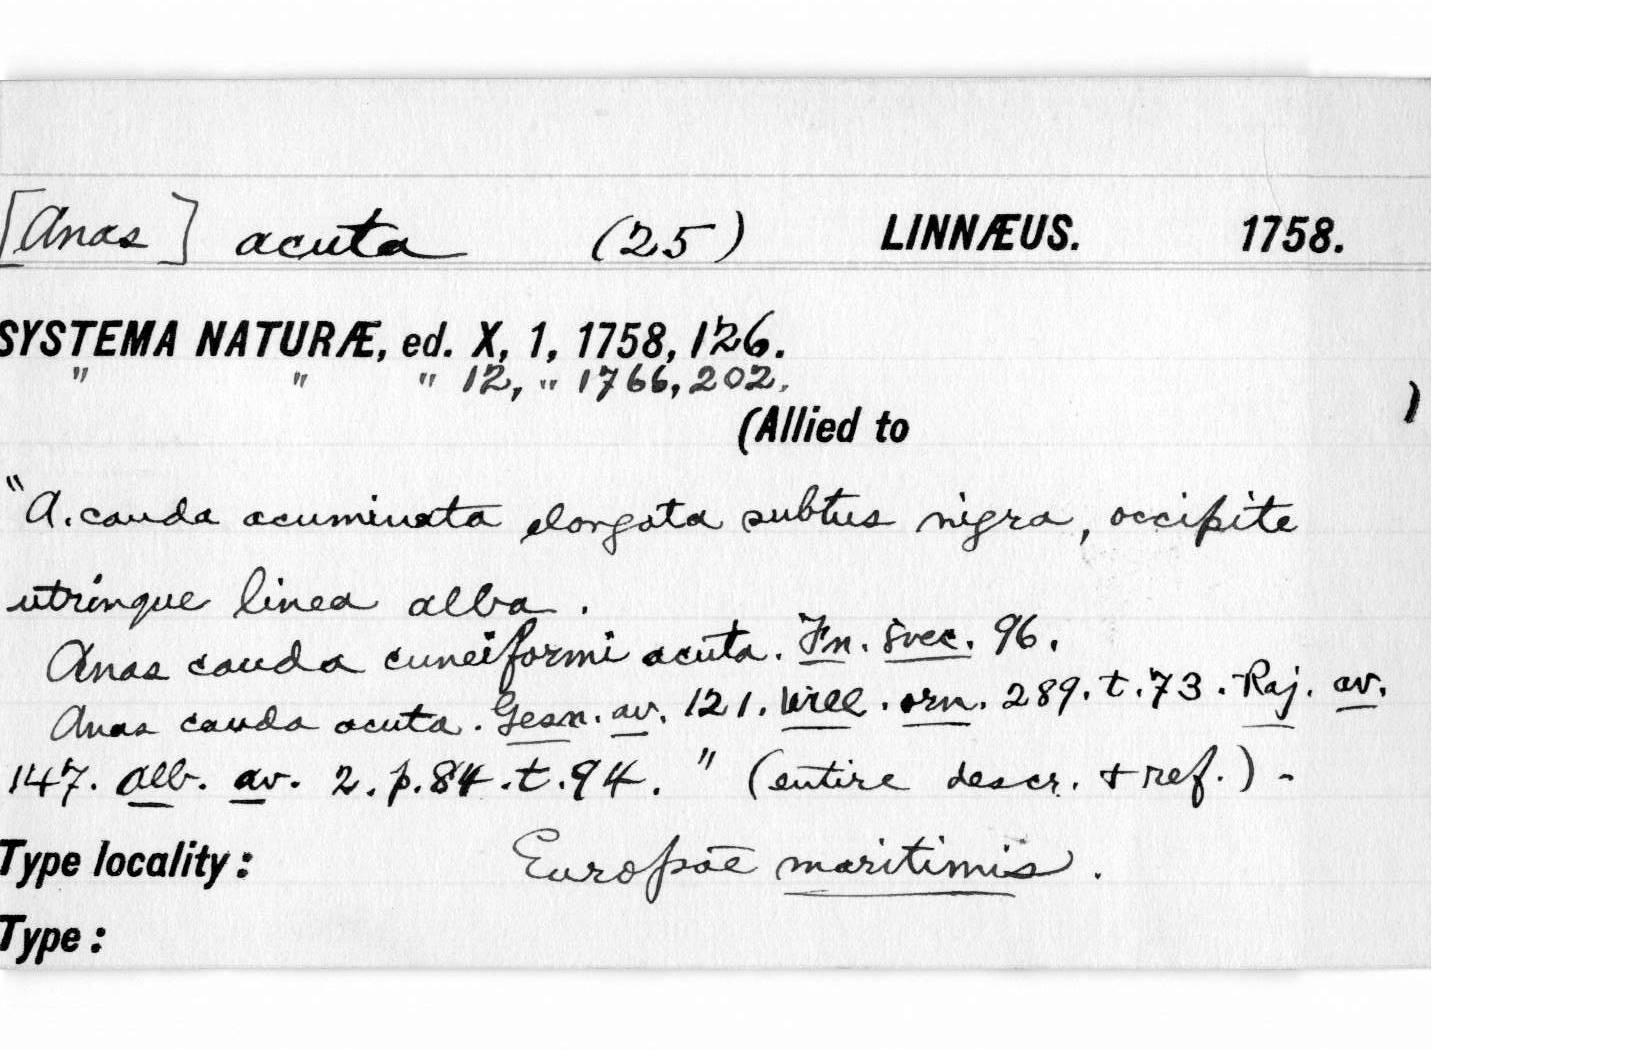 [Anas] acuta (25) LINNÆUS. 1758.
SYSTEMA NATURÆ, ed. X, 1, 1758, 126.
" " " 12, " 1766, 202.
(Allied to )
"A. cauda acuminata elongata subtus nigra, occipite
utrinque linea alba.
Anas cauda cuneiformi acuta. Fn. svec. 96.
Anas cauda acuta. Gesn. av. 121. Will. orn. 289. t. 73. Raj. av.
147. Alb. av. 2. p. 84. t. 94." (entire descr. + ref.) -
Type locality: Europae maritimis.
Type: